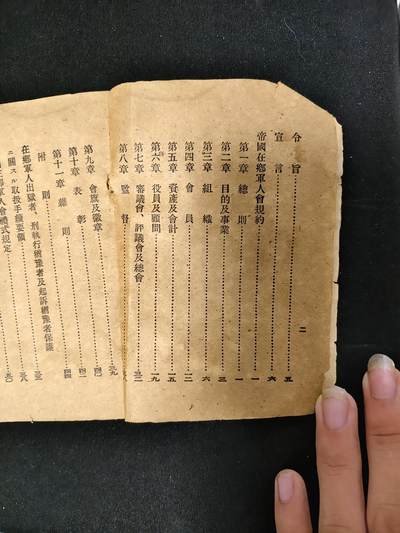 二
令旨……五
宣言……六
帝國在鄕軍人會規約……一
第一章 總則……一
第二章 目的及事業……三
第三章 組織……六
第四章 會員……一二
第五章 資產及會計……一五
第六章 役員及顧問……一九
第七章 審議會、評議會及總會
第八章 監督
第九章 會旗及徽章
第十章 表彰
第十一章 雜則
附則
在鄕軍人出獄者、刑執行猶豫者及起訴猶豫者保護
ニ關スル取扱手續要領